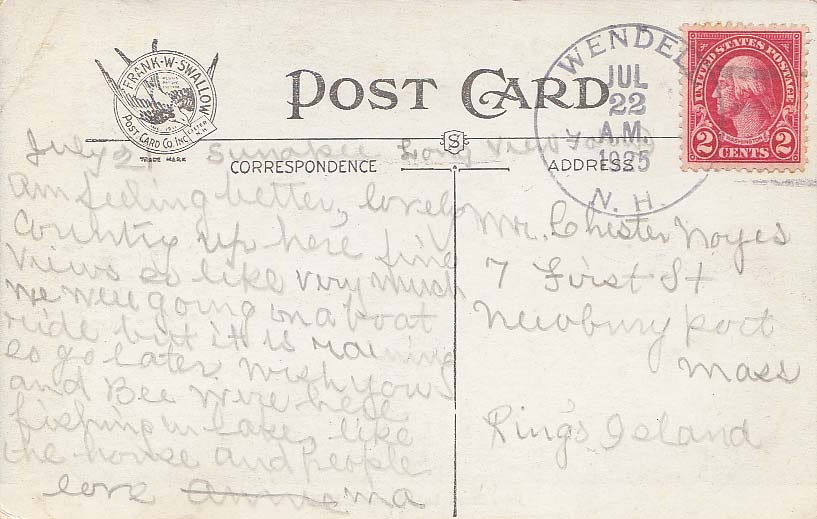 FRANK·W·SWALLOW
POST CARD CO. INC.
TRADE MARK
POST CARD
WENDELL
JUL
22
A.M.
1925
N. H.
UNITED STATES POSTAGE
WASHINGTON
2 CENTS 2
CORRESPONDENCE
S
ADDRESS
July 21 Sunapee Long View
Am feeling better, lovely
Country up here fine
views so like very much
we were going on a boat
ride but it is raining
so go later. Wish you
and Bee were here
fishing in lake, like
the house and people
love Annie ma
Mr. Chester Noyes
7 First St
Newburyport
Mass
Ring's Island